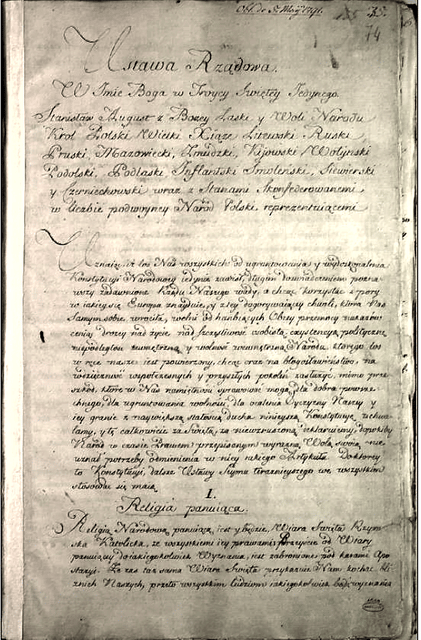 Ustawa Rządowa.
W Imie Boga w Troycy Swiętey Jedynego.
Stanisław August z Bożey Łaski y Woli Narodu
Krol Polski Wielki Xiąże Litewski Ruski
Pruski, Mazowiecki, Zmudzki, Kijowski Wołyński
Podolski, Podlaski Inflantski Smoleński, Siewierski
y Czerniechowski wraz z Stanami Skonfederowanemi
w liczbie podwoyney Narod Polski reprezentuiącemi
Uznaiąc iż los Nas wszystkich od ugruntowania y wydoskonalenia
Konstytucyi Narodowey iedynie zawisł, długim doswiadczeniem pozna-
wszy zadawnione Rządu Naszego wady, a chcąc korzystać z pory
w iakiey się Europa znayduie, y z tey dogorywaiącey chwili, która Nas
Samym sobie wrociła, wolni od hańbiących Obcey przemocy nakazów
ceniąc drożey nad życie nad szczęśliwość osobistą, exystencyą polityczną
niepodległość zewnętrzną y wolność wewnętrzną Narodu, którego los
w ręce nasze iest powierzony, chcąc oraz na błogosławieństwo, na
wdzięczność współczesnych y przyszłych pokoleń zasłużyć, mimo prze-
szkod, które w Nas namiętności sprawować mogą, dla dobra powsze-
chnego, dla ugruntowania wolności, dla ocalenia Oyczyzny Naszey y
iey granic z naywiększą stałością ducha ninieyszą Konstytucyę uchwa-
lamy, y tę całkowicie za świętą, za niewzruszoną deklaruiemy, dopokiby
Narod w czasie Prawem przepisanym wyraźną Wolą swoią nie
uznał potrzeby odmienienia w niey iakiego Artykułu. Do ktorey
to Konstytucyi, dalsze Ustawy Seymu teraznieyszego we wszystkim
stosować się maią.
I.
Religia panuiąca.
Religią Narodową panuiącą iest y będzie, Wiara Swięta Rzym-
ska Katolicka, ze wszystkiemi iey prawami. Przeyście od Wiary
panuiącey do iakiegokolwiek Wyznania, iest zabronione pod karami Apo-
stazyi. Ze zaś taż sama Wiara Swięta przykazuie Nam kochać bli-
znich Naszych, przeto wszystkim ludziom iakiegokolwiek bądź wyznania